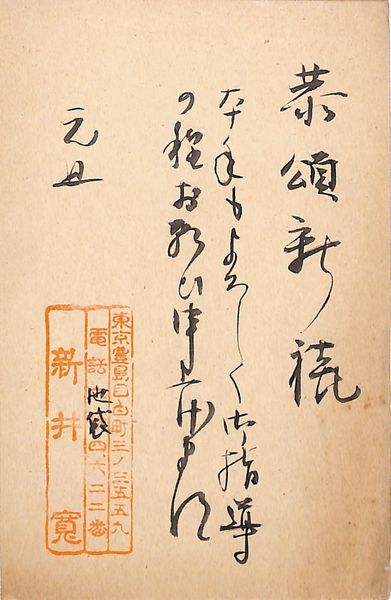 恭頌新禧
本年もよろしく御指導
の程お願ひ申上げます
元旦
東京豊島目白町三ノ三五五九
電話池袋四六二二番
新井寛